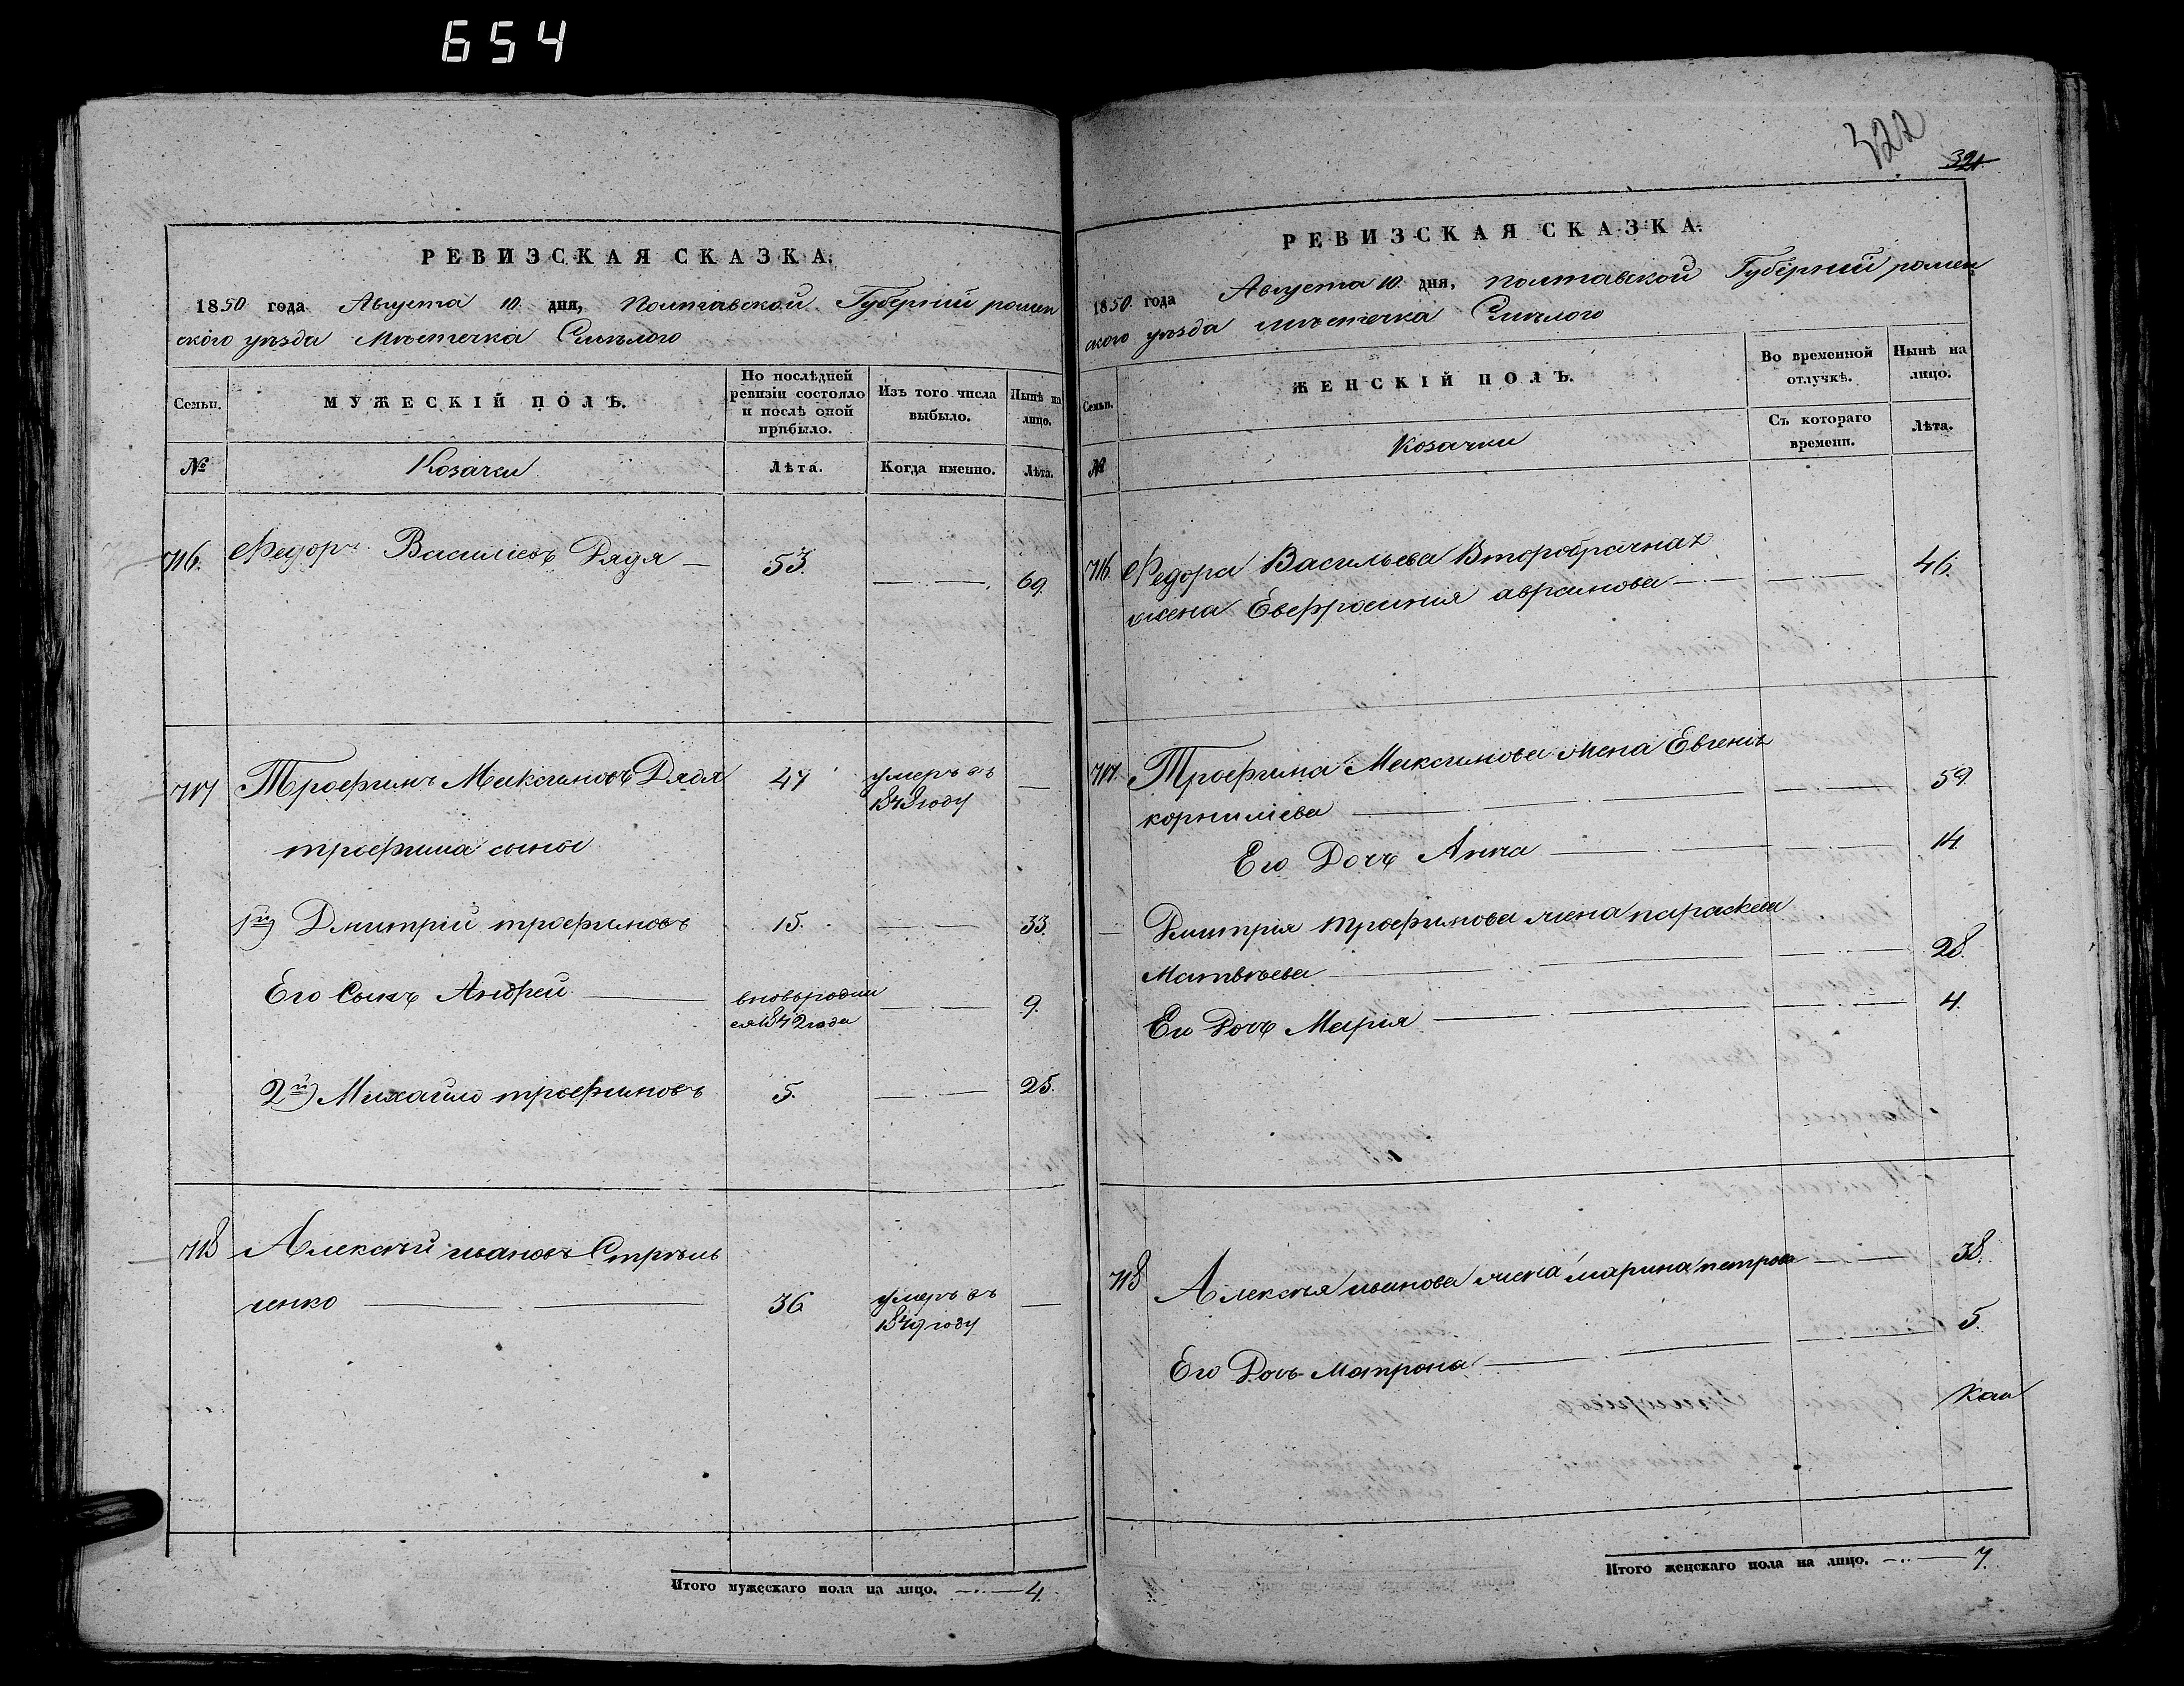 654
322
321
РЕВИЗСКАЯ СКАЗКА.
1850 года Августа 10. дня, Полтавской Губерніи ромен
ского уѣзда Мѣстечка Смѣлого
Семьи.
МУЖЕСКІЙ ПОЛЪ.
По послѣдней
ревизіи состояло
и послѣ оной
прибыло.
Изъ того числа
выбыло.
Нынѣ на
лицо.
№
Козачки
Лѣта.
Когда именно.
Лѣта.
716. Федоръ Василіевъ Дядя — 53. 69.
717 Трофимъ Максимовъ Дядя 47 умеръ въ
1848 году
трофима сыны
1й) Дмитрій трофимовъ 15. 33.
Его Сынъ Андрей вновьродил
ся 1842 года 9.
2й) Михайло трофимовъ 5. 25.
718 Алексѣй ивановъ Стрѣль
ченко 36 умеръ въ
1849 году
Итого мужескаго пола на лицо. 4.
РЕВИЗСКАЯ СКАЗКА.
1850. года Августа 10. дня, полтавской Губерніи ромен
ского уѣзда мѣстечка Смѣлого
Семьи.
ЖЕНСКІЙ ПОЛЪ.
Во временной
отлучкѣ.
Нынѣ на
лицо.
№
Козачки
Съ котораго
времени.
Лѣта.
716. Федора Васильева Второбрачная
жена Евфросинія 46.
717. Трофима Максимова жена Евгенія
корниліева 59.
Его Дочь Анна 14.
Дмитрія трофимова жена параскева
Матвѣева 28.
Его Дочь Марія 4.
718 Алексѣя иванова жена марина петрова 38.
Его Дочь Матрона 5.
Итого женскаго пола на лицо. 7.